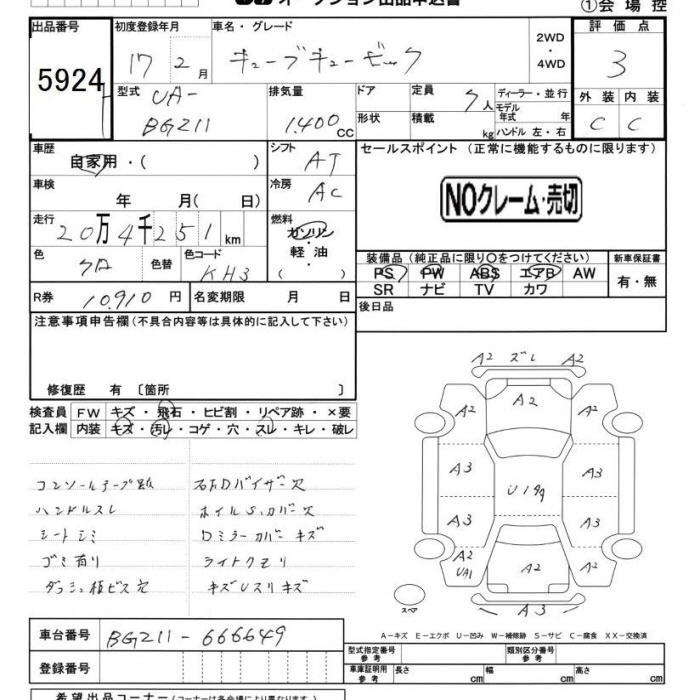 オークション出品申込書
①会場控
出品番号
5924
初度登録年月
17 2月
車名・グレード
キューブキュービック
2WD
・
4WD
評価点
3
型式
UA-
BGZ11
排気量
1.400 CC
ドア
形状
定員
7人
積載
kg
ディーラー・並行
モデル
年式 年
ハンドル 左・右
外装 内装
C C
車歴
自家用・( )
シフト
AT
セールスポイント (正常に機能するものに限ります)
車検
年 月( 日)
冷房
AC
NOクレーム・売切
走行
20万4千251km
燃料
ガソリン
・
軽油
・
( )
色
色替
色コード
KH3
装備品(純正品に限り○をつけてください)
新車保証書
PS PW ABS エアB AW
SR ナビ TV カワ
有・無
R券
10.910円
名変期限 月 日
後日品
注意事項申告欄(不具合内容等は具体的に記入して下さい)
修復歴 有 〔箇所 〕
検査員
記入欄
FW キズ・飛石・ヒビ割・リペア跡・×要
内装 キズ・汚レ・コゲ・穴・スレ・キレ・破レ
ハンドルスレ
シートシミ
ゴミ有り
ホイルS.カバー欠
Dミラーカバーキズ
ライトクモリ
A2 ズレ A2
A2
A2
A2
A3
A3
U199
A3
A3
A2
UA1
A2
A2
A3
スペア
A-キズ E-エクボ U-凹み W-補修跡 S-サビ C-腐食 XX-交換済
車台番号
BGZ11-666649
登録番号
型式指定番号
参考
類別区分番号
参考
車庫証明用
参考
長さ cm
幅 cm
高さ cm
希望出品コーナー(コーナーは各会場により異なります)